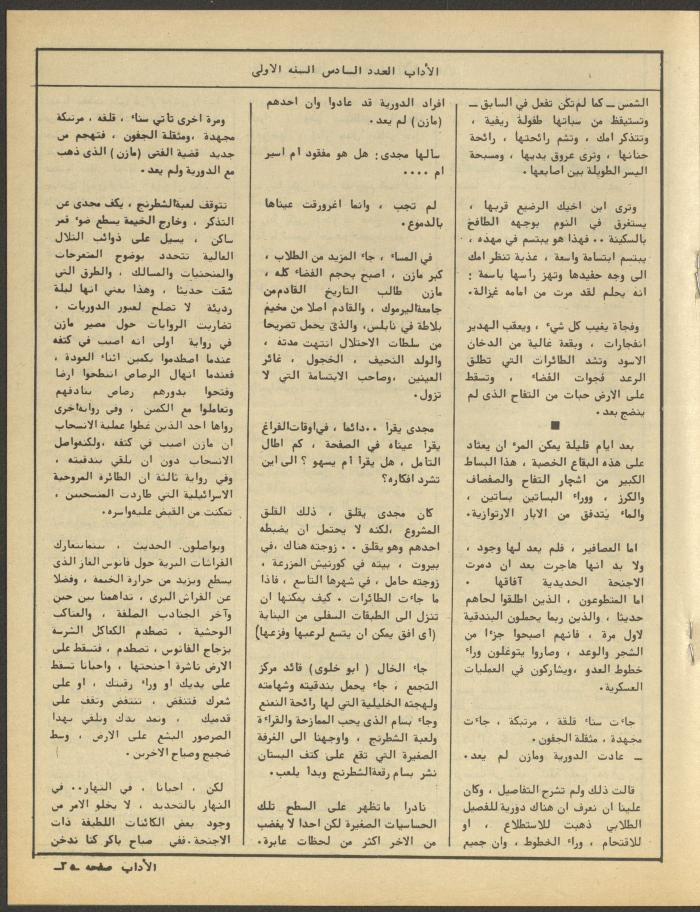 الأداب العدد السادس السنه الاولى
الشمس ــ كما لم تكن تفعل في السابق ــ
وتستيقظ من سباتها طفولة ريفية ،
وتتذكر امك ، وتشم رائحتها ، رائحة
حنانها ، وترى عروق يديها ، ومسبحة
اليسر الطويلة بين اصابعها .
وترى ابن اخيك الرضيع قربها ،
يستغرق في النوم بوجهه الطافح
بالسكينة .. فهذا هو يبتسم في مهده ،
يبتسم ابتسامة واسعة ، عذبة تنظر امك
الى وجه حفيدها وتهز رأسها باسمة :
انه يحلم لقد مرت من امامه غزالة.
وفجأة يغيب كل شيء ، ويعقب الهدير
انفجارات ، وبقعة غالية من الدخان
الاسود وتشد الطائرات التي تطلق
الرعد فجوات الفضاء ، وتسقط
على الارض حبات من التفاح الذى لم
ينضج بعد .
■
بعد ايام قليلة يمكن المرء ان يعتاد
على هذه البقاع الخصبة ، هذا البساط
الكبير من اشجار التفاح والصفصاف
والكرز ، ووراء البساتين بساتين ،
والماء يتدفق من الابار الارتوازية.
اما العصافير ، فلم يعد لها وجود ،
ولا بد انها هاجرت بعد ان دمرت
الاجنحة الحديدية آفاقها .
اما المتطوعون ، الذين اطلقوا لحاهم
حديثا ، والذين ربما يحملون البندقية
لاول مرة ، فانهم اصبحوا جزءا من
الشجر والوعد ، وصاروا يتوغلون وراء
خطوط العدو ،ويشاركون في العمليات
العسكرية.
جاءت سناء قلقة ، مرتبكة ، جاءت
مجهدة ، مثقلة الجفون.
ــ عادت الدورية ومازن لم يعد.
قالت ذلك ولم تشرح التفاصيل ، وكان
علينا ان نعرف ان هناك دورية للفصيل
الطلابي ذهبت للاستطلاع ، او
للاقتحام ، وراء الخطوط ، وان جميع
افراد الدورية قد عادوا وان احدهم
(مازن) لم يعد.
سألها مجدى: هل هو مفقود ام اسير
ام ....
لم تجب ، وانما اغرورقت عيناها
بالدموع.
في المساء ، جاء المزيد من الطلاب ،
كبر مازن ، اصبح بحجم الفضاء كله ،
مازن طالب التاريخ القادم من
جامعة اليرموك ، والقادم اصلا من مخيم
بلاطة في نابلس، والذى يحمل تصريحا
من سلطات الاحتلال انتهت مدته ،
والولد النحيف ، الخجول ، غائر
العينين ،وصاحب الابتسامة التي لا
تزول.
مجدى يقرأ ..دائما ، في اوقات الفراغ
يقرأ عيناه في الصفحة ، كم اطال
التأمل ، هل يقرأ أم يسهو ؟ الى اين
تشرد افكاره؟
كان مجدى يقلق ، ذلك القلق
المشروع ،لكنه لا يحتمل ان يضبطه
احدهم وهو يقلق .. زوجته هناك ،في
بيروت ، بيته في كورنيش المزرعة ،
زوجته حامل ، في شهرها التاسع ، فاذا
ما جاءت الطائرات . كيف يمكنها ان
تنزل الى الطبقات السفلى من البناية
(اى افق يمكن ان يتسع لرعبها وفزعها)
جاء الخال ( ابو خلوى) قائد مركز
التجمع ، جاء يحمل بندقيته وشهامته
ولهجته الخليلية التي لها رائحة النعنع
وجاء بسام الذى يحب الممازحة والقراءة
ولعبة الشطرنج ، واوجهنا الى الغرفة
الصغيرة التي تقع على كتف البستان
نشر بسام رقعة الشطرنج وبدأ يلعب.
نادرا ما تظهر على السطح تلك
الحساسيات الصغيرة لكن احدا لا يغضب
من الاخر اكثر من لحظات عابرة.
ومرة اخرى تأتي سناء ، قلقة ، مرتبكة
مجهدة ،ومثقلة الجفون ، فتهجم من
جديد قضية الفتى (مازن) الذى ذهب
مع الدورية ولم يعد.
تتوقف لعبة الشطرنج ، يكف مجدى عن
التذكر ، وخارج الخيمة يسطع ضوء قمر
ساكن ، يسيل على ذوائب التلال
العالية تتحدد بوضوح المتعرجات
والمنحنيات والمسالك ، والطرق التي
شقت حديثا ، وهذا يعني انها ليلة
رديئة لا تصلح لعبور الدوريات ،
تضاربت الروايات حول مصير مازن
في رواية اولى انه اصيب في كتفه
عندما اصطدموا بكمين اثناء العودة ،
فعندما انهال الرصاص انبطحوا ارضا
وفتحوا بدورهم رصاص بنادقهم
وتعاملوا مع الكمين . وفى رواية اخرى
رواها احد الذين غطوا عملية الانسحاب
ان مازن اصيب في كتفه ،ولكنه واصل
الانسحاب دون ان يلقي بندقيته ،
وفي رواية ثالثة ان الطائرة المروحية
الاسرائيلية التي طاردت المنسحبين ،
تمكنت من القبض عليه واسره.
ويواصلون الحديث ، بينما تتعارك
الفراشات البرية حول فانوس الغاز الذى
يسطع ويزيد من حرارة الخيمة ، وفضلا
عن الفراش البرى ، تداهمنا بين حين
وآخر الجنادب الصلفة ، والعناكب
الوحشية ، تصطدم الكعاكل الشرسة
بزجاج الفانوس ، تصطدم ، فتسقط على
الارض ناشرة اجنحتها ، واحيانا تسقط
على يديك او وراء رقبتك ، او على
شعرك فتنتفض ، تنتفض وتقف على
قدميك ، وتمد يدك وتلقي بهذا
الصرصور البشع على الارض ، وسط
ضجيج وصياح الاخرين.
لكن ، احيانا ، في النهار.. في
النهار بالتحديد ، لا يخلو الامر من
وجود بعض الكائنات اللطيفة ذات
الاجنحة .ففي صباح باكر كنا ندخن
الأداب صفحه ـ٢٥ـ